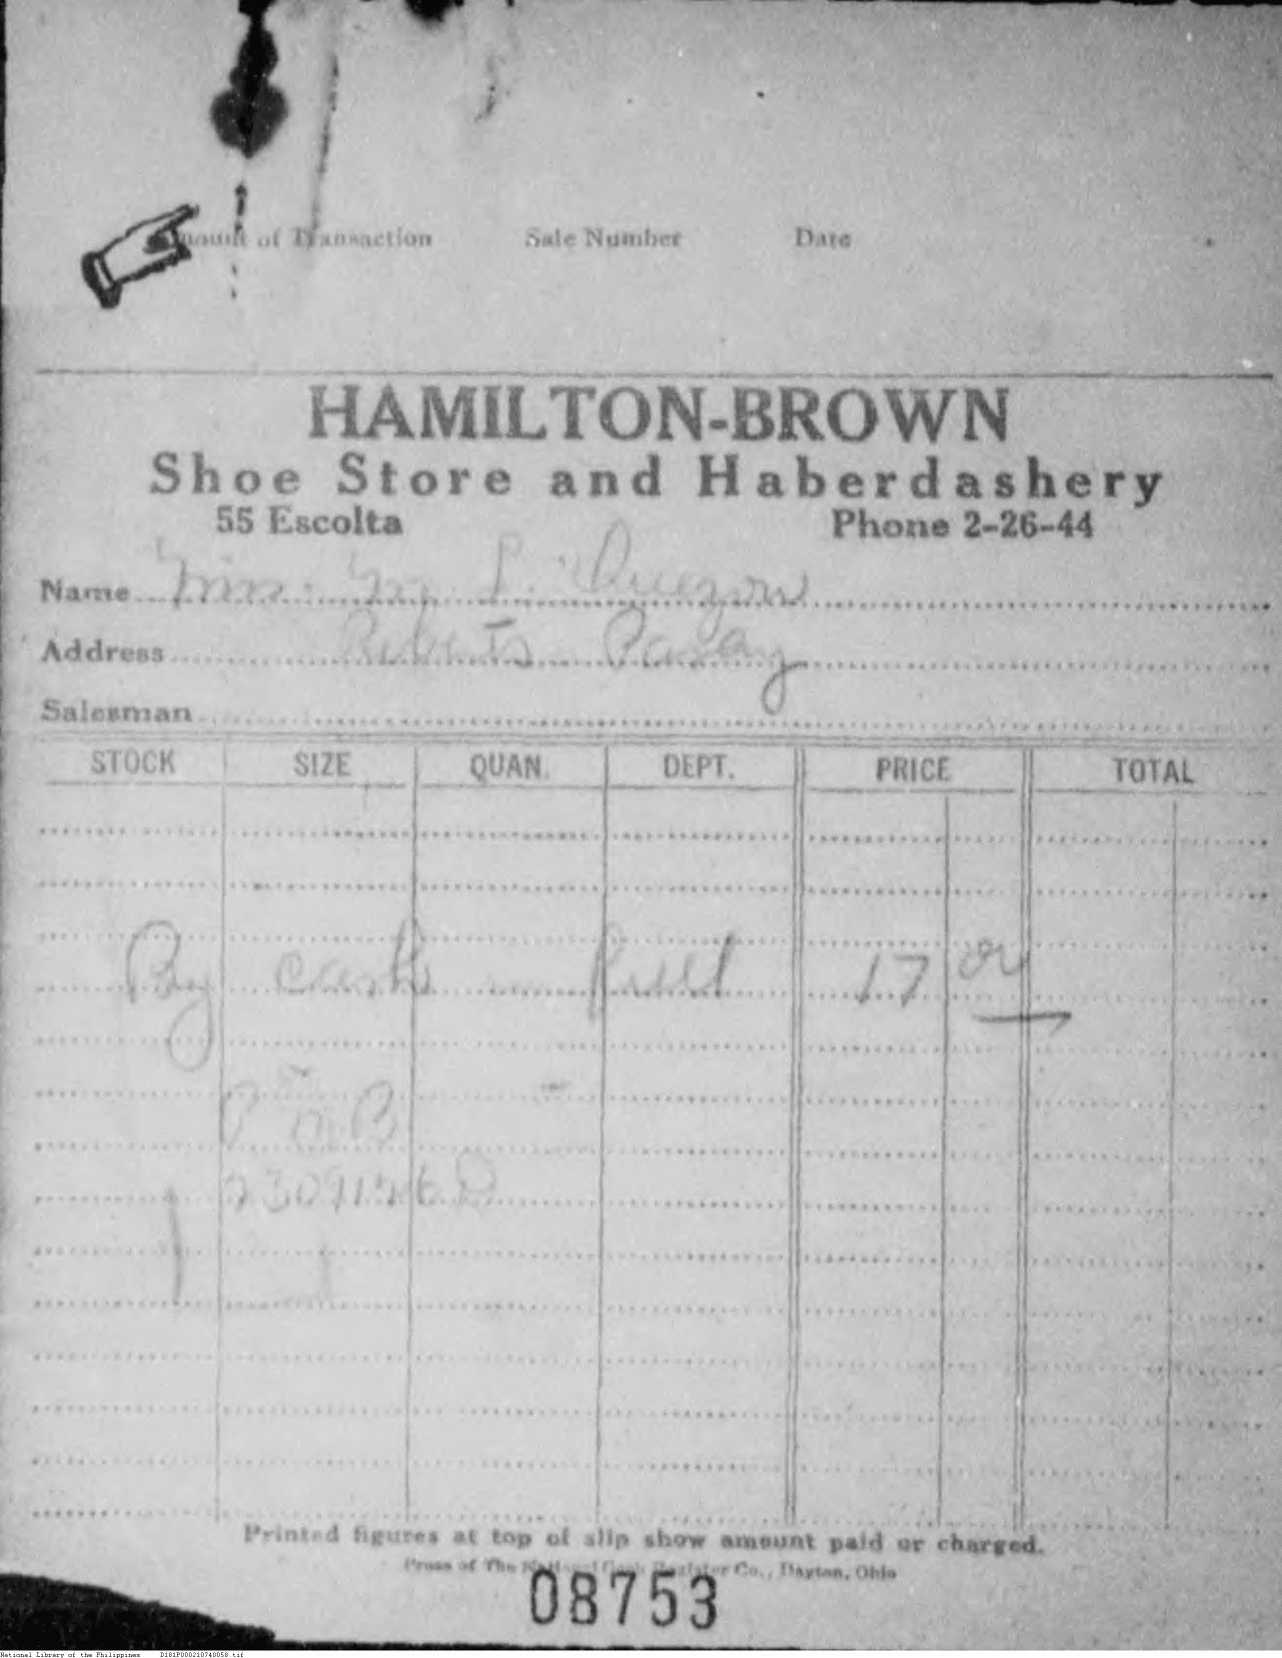 Amount of Transaction Sale Number Date
HAMILTON-BROWN
Shoe Store and Haberdashery
55 Escolta Phone 2-26-44
Name Mrs. M. L. Quezon
Address Roberts Pasay
Salesman
STOCK SIZE QUAN. DEPT. PRICE TOTAL
By cash in full 17 00
Printed figures at top of slip show amount paid or charged.
Press of The National Cash Register Co., Dayton, Ohio
08753
National Library of the Philippines D181P000210740058.tif